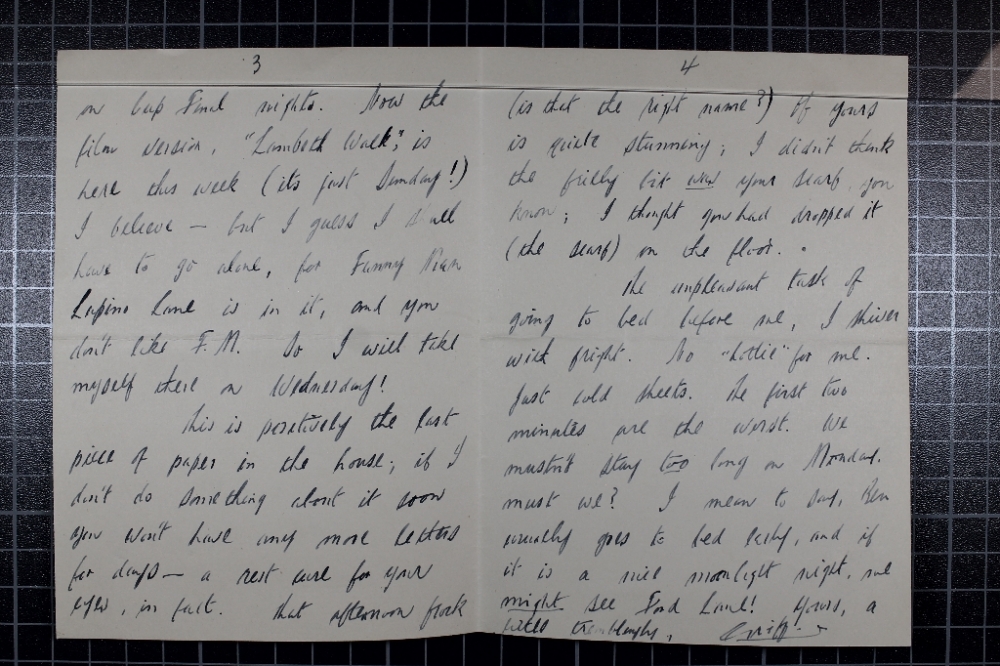 3
on Cup Final nights. Now the
film version, "Lambeth Walk", is
here this week (its just Sunday!)
I believe — but I guess I shall
have to go alone, for Funny Man
Lupino Lane is in it, and you
don't like F.M. So I will take
myself there on Wednesday!
This is positively the last
piece of paper in the house; if I
don't do something about it soon
you won't have any more letters
for days — a rest cure for your
eyes, in fact. That afternoon frock
4
(is that the right name?) of yours
is quite stunning; I didn't think
the frilly bit was your scarf, you
know; I thought you had dropped it
(the scarf) on the floor.
The unpleasant task of
going to bed before me, I shiver
with fright. No "hottie" for me.
Just cold sheets. The first two
minutes are the worst. We
mustn't stay too long on Monday.
must we? I mean to say, Ben
usually goes to bed early, and if
it is a nice moonlight night, we
might see Ford Lane! Yours, a
little tremblingly,